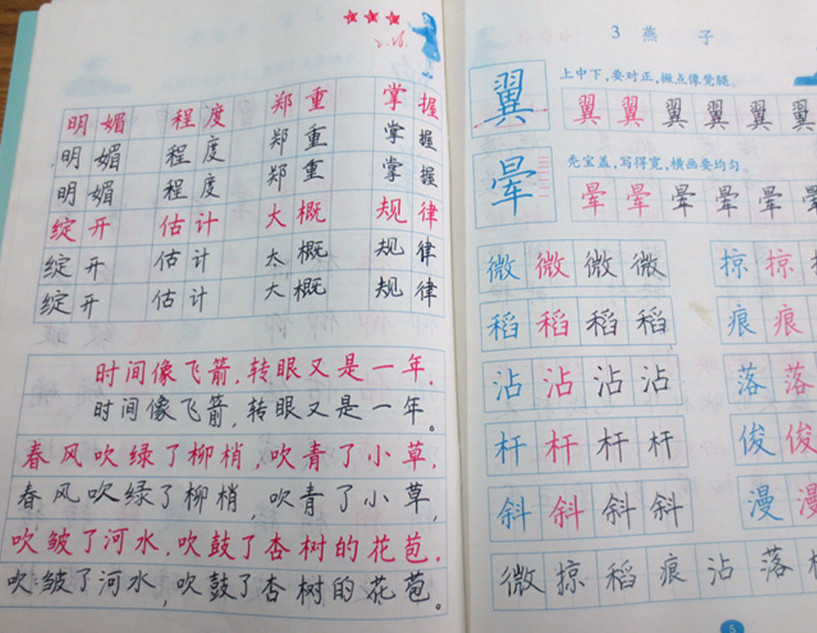 2.26.
明媚 程度 郑重 掌握
明媚 程度 郑重 掌握
明媚 程度 郑重 掌握
绽开 估计 大概 规律
绽开 估计 大概 规律
绽开 估计 大概 规律
时间像飞箭,转眼又是一年.
时间像飞箭,转眼又是一年。
春风吹绿了柳梢,吹青了小草,
春风吹绿了柳梢,吹青了小草,
吹皱了河水,吹鼓了杏树的花苞.
吹皱了河水,吹鼓了杏树的花苞。
3 燕子
翼
上中下,要对正,撇点像凳腿。
翼翼翼翼翼翼
晕
秃宝盖,写得宽,横画要均匀。
晕晕晕晕晕晕
微微微微 掠掠
稻稻稻稻 痕痕
沾沾沾沾 落落
杆杆杆杆 俊俊
斜斜斜斜 漫漫
微掠稻痕沾落
5